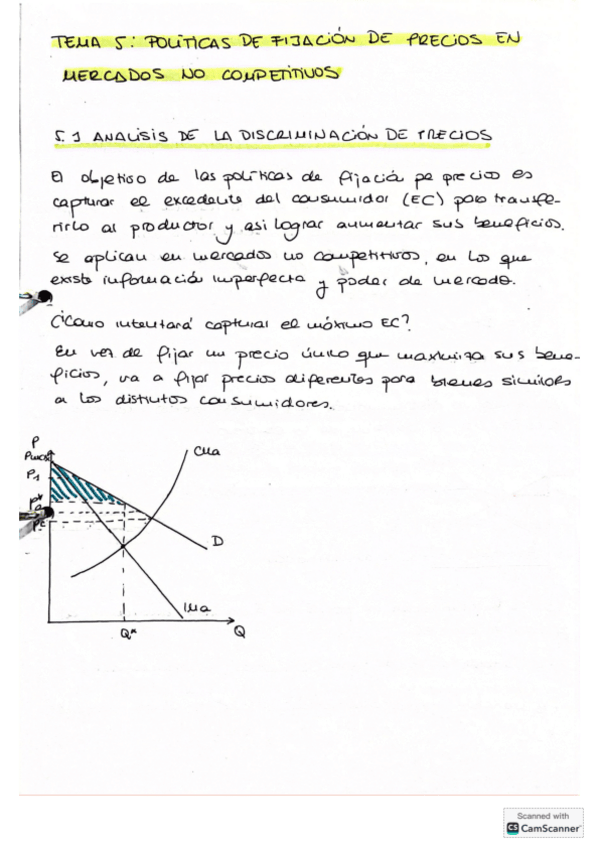 TEMA 5: POLÍTICAS DE FIJACIÓN DE PRECIOS EN
MERCADOS NO COMPETITIVOS
5.1 ANALISIS DE LA DISCRIMINACIÓN DE PRECIOS
El objetivo de las políticas de fijación pe precios es
capturar el excedente del consumidor (EC) para transfe-
rirlo al productor y asi lograr aumentar sus beneficios.
Se aplican en mercados no competitivos, en los que
existe información imperfecta y poder de mercado.
¿Cómo intentará capturar el máximo EC?
En vez de fijar un precio único que maximiza sus bene-
ficios, va a fijar precios diferentes para bienes similares
a los distintos consumidores.
P
Pmax
CMa
P1
P*
P2
Pc
D
IMa
Q*
Q
Scanned with
CS CamScanner